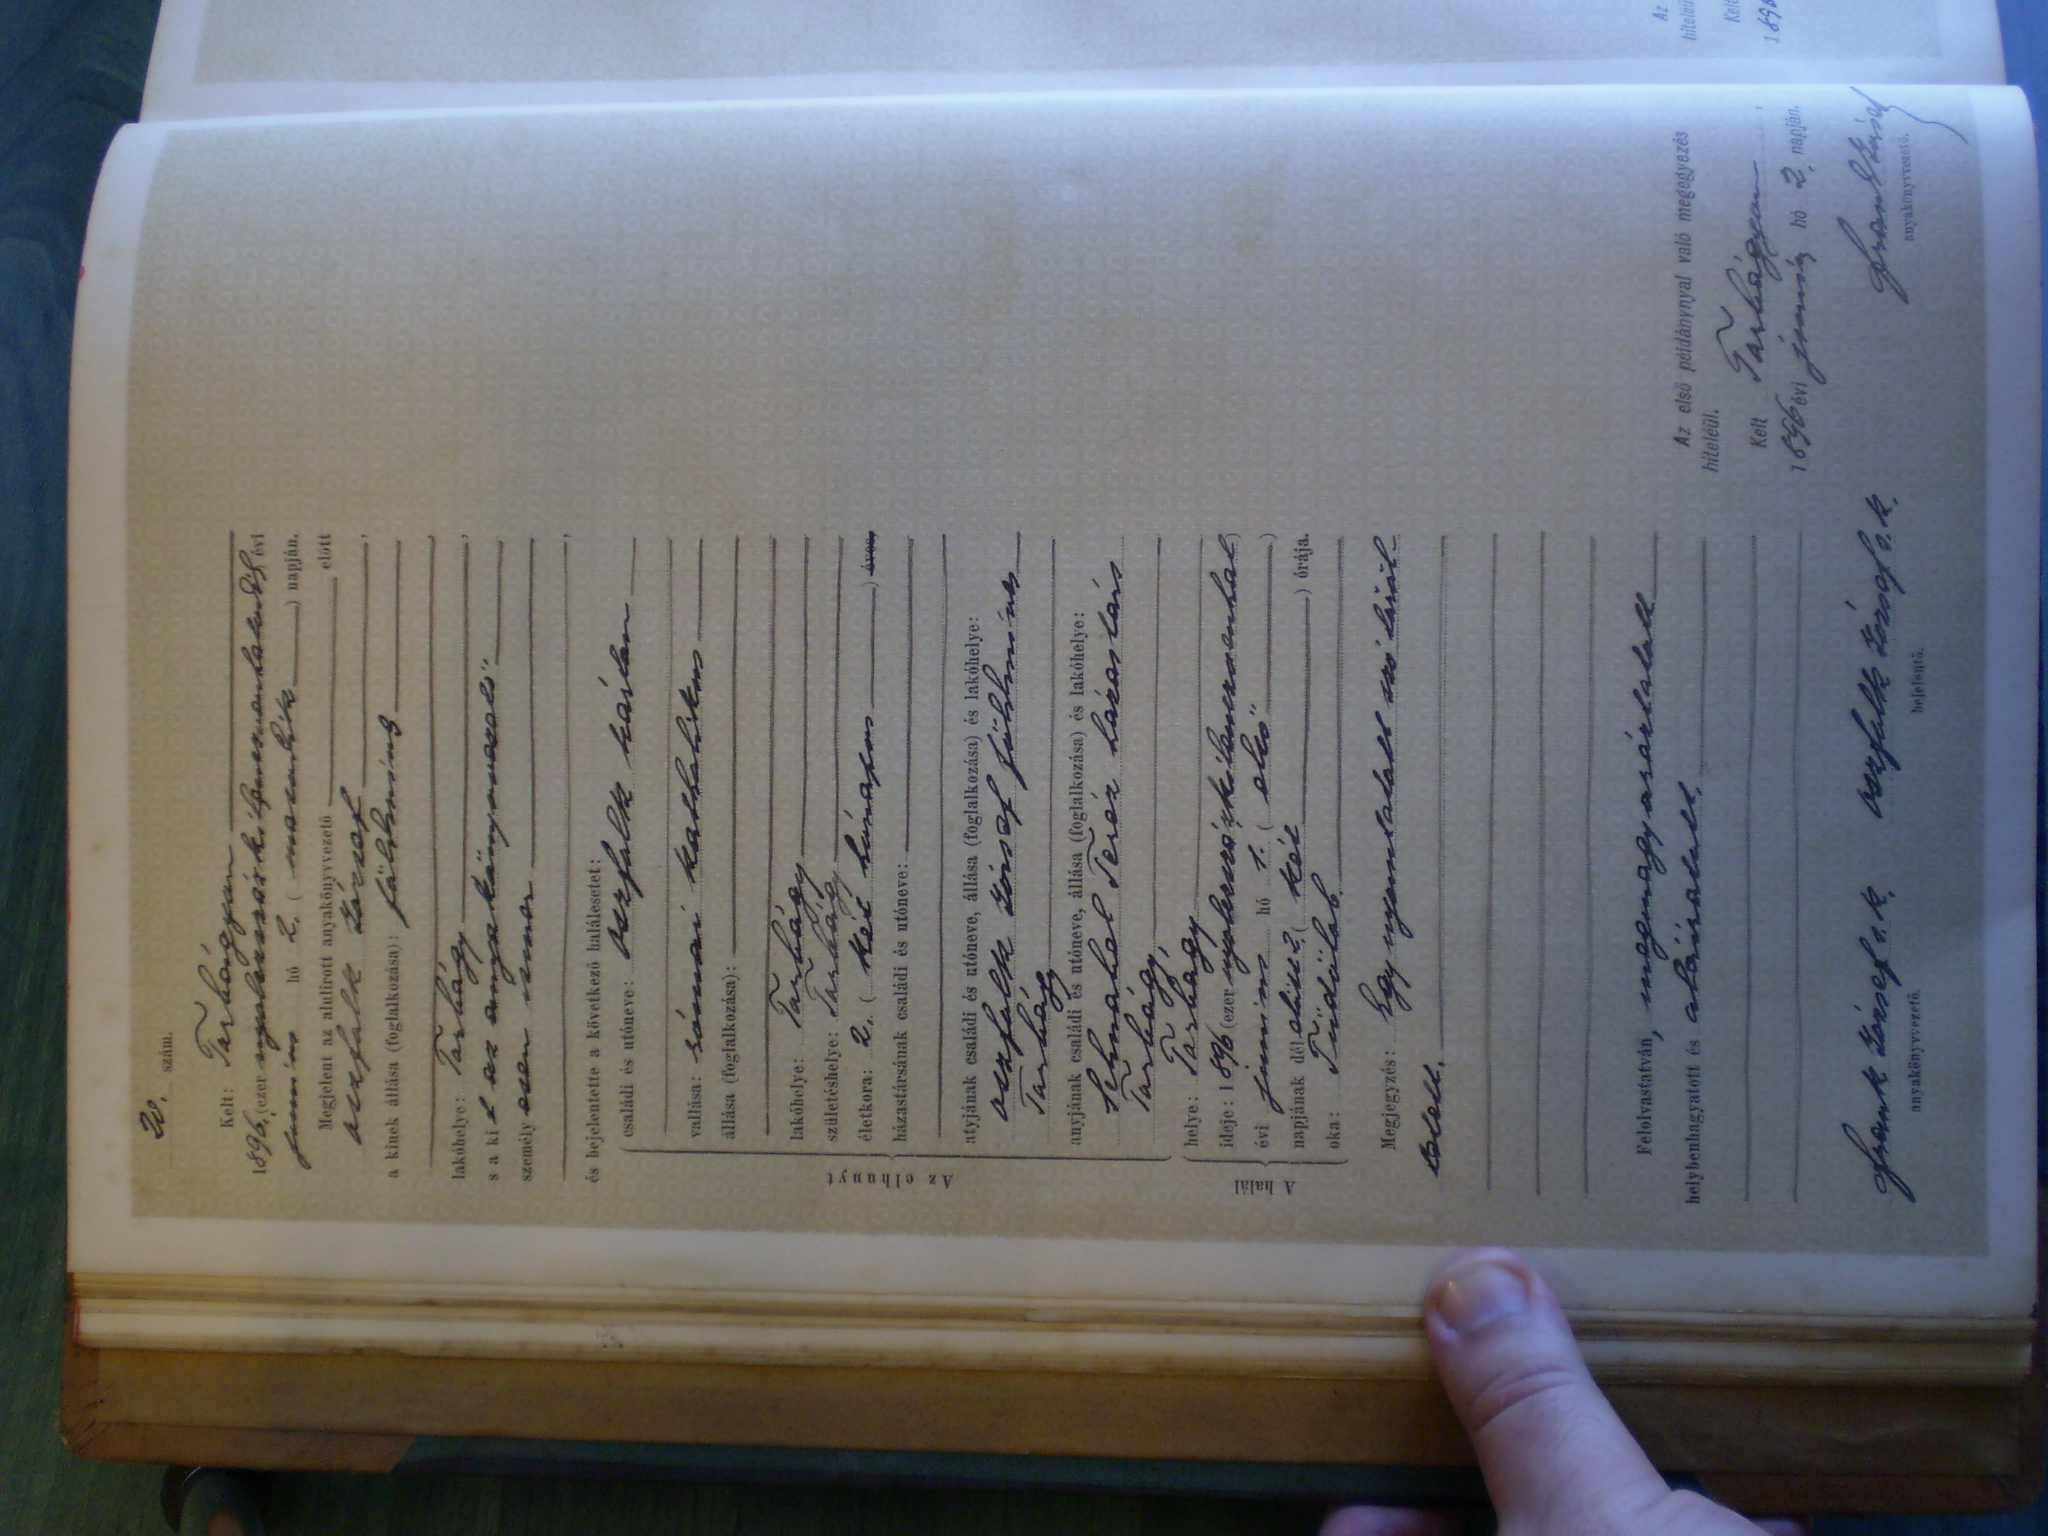 20. szám.
Kelt: Tarbágyan
1896. (ezer nyolcszázkilencvenhatodik) évi
junius hó 2. (második) napján.
Megjelent az alulirott anyakönyvvezető előtt
József
a kinek állása (foglalkozása): földmíves
lakóhelye: Tarbágy
s a ki t az anyakönyvvezető
személy esen ismer
és bejelentette a következő halálesetet:
Az elhunyt
családi és utóneve:
vallása: római katholikus
állása (foglalkozása):
lakóhelye: Tarbágy
születéshelye: Tarbágy
életkora: 2. (két hónapos) éves,
házastársának családi és utóneve:
atyjának családi és utóneve, állása (foglalkozása) és lakóhelye:
József földmíves
Tarbágy
anyjának családi és utóneve, állása (foglalkozása) és lakóhelye:
Teréz háztartás
Tarbágy
A halál
helye: Tarbágy
ideje: 1896 (ezer nyolcszázkilencvenhat)
évi junius hó 1. (első)
napjának dél előtt 2. (két) órája.
oka: Tüdőlob.
Megjegyzés: Egy nyomtatott szó töröl-
tetett.
Felolvastatván, megmagyaráztatott
helybenhagyatott és aláíratott.
Frank József s. k.
anyakönyvvezető.
József s. k.
bejelentő.
Az első példánynyal való megegyezés
hiteléül.
Kelt Tarbágyon,
1896 évi junius hó 2. napján.
Frank József
anyakönyvvezető.
Az
hiteléül
Kelt
1896